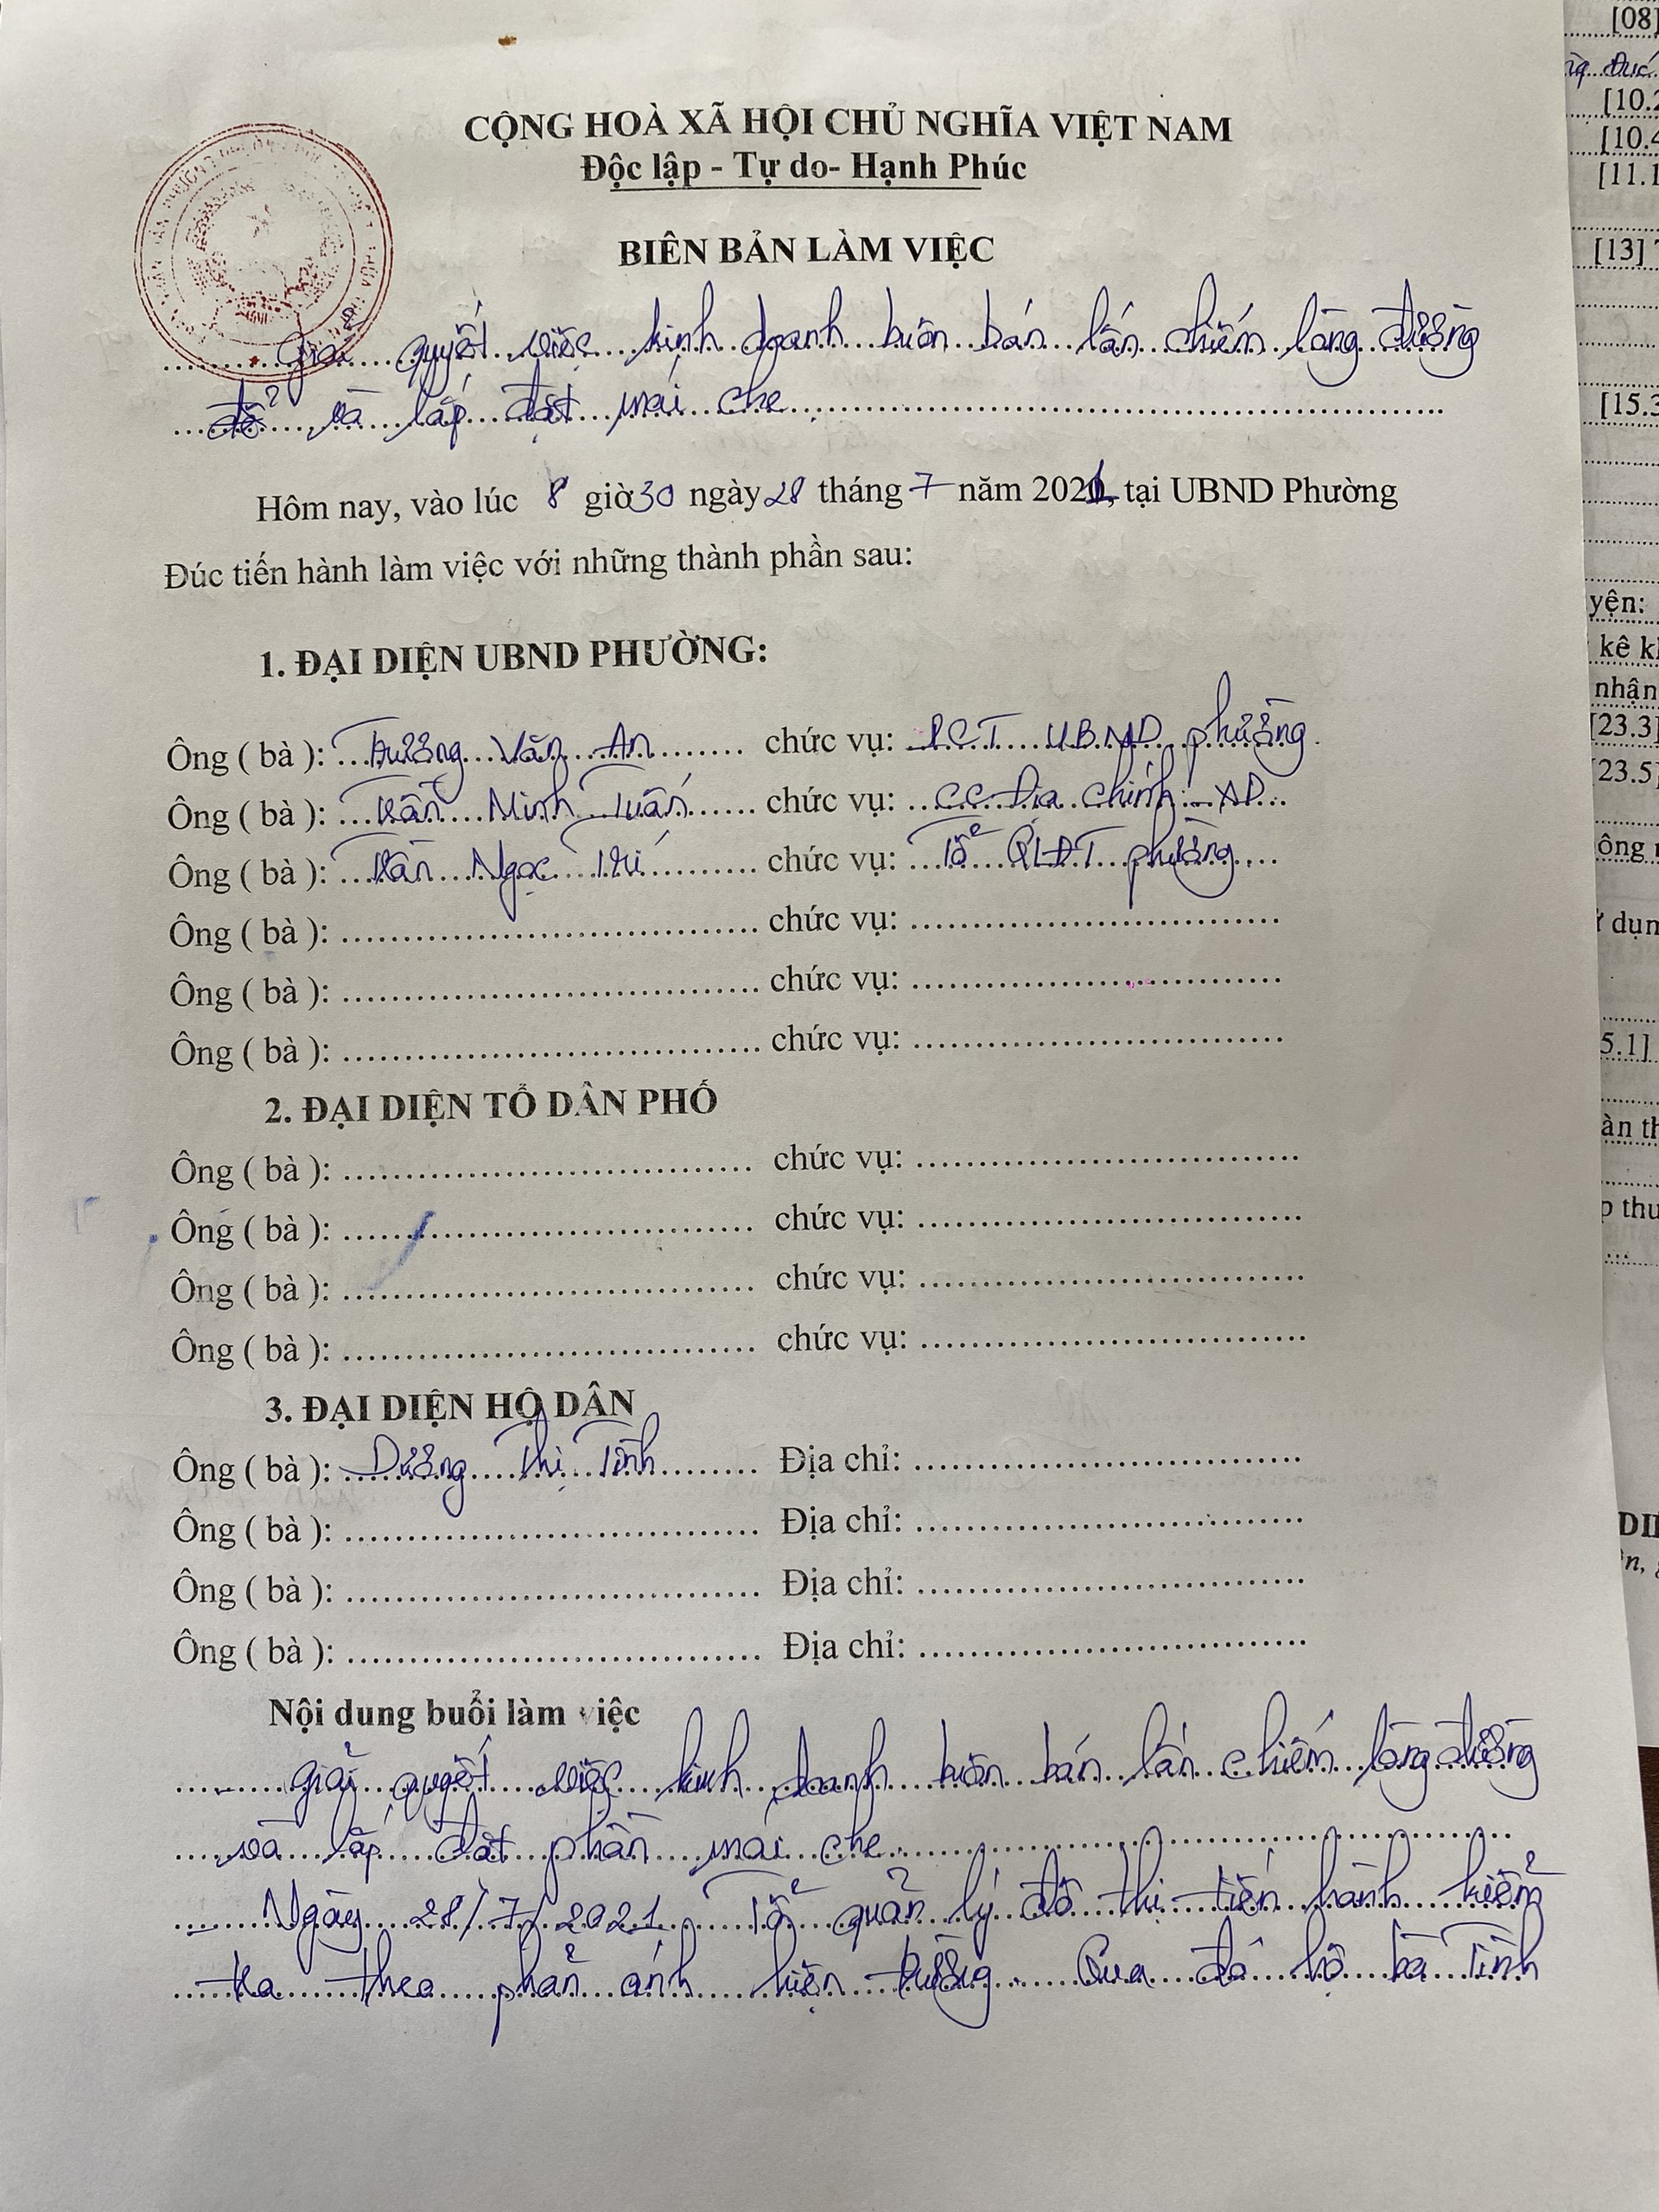 CỘNG HOÀ XÃ HỘI CHỦ NGHĨA VIỆT NAM
Độc lập - Tự do- Hạnh Phúc
BIÊN BẢN LÀM VIỆC
Giải quyết việc kinh doanh buôn bán lấn chiếm lòng đường
để và lắp đặt mái che
Hôm nay, vào lúc 8 giờ 30 ngày 28 tháng 7 năm 2021, tại UBND Phường
Đúc tiến hành làm việc với những thành phần sau:
1. ĐẠI DIỆN UBND PHƯỜNG:
Ông ( bà ): Trương Văn An chức vụ: P.C.T UBND phường
Ông ( bà ): Trần Minh Tuấn chức vụ: CC Địa chính - XD
Ông ( bà ): Trần Ngọc Trí chức vụ: Tổ QLĐT phường
Ông ( bà ): chức vụ:
Ông ( bà ): chức vụ:
Ông ( bà ): chức vụ:
2. ĐẠI DIỆN TỔ DÂN PHỐ
Ông ( bà ): chức vụ:
Ông ( bà ): chức vụ:
Ông ( bà ): chức vụ:
Ông ( bà ): chức vụ:
3. ĐẠI DIỆN HỘ DÂN
Ông ( bà ): Dương Thị Tình Địa chỉ:
Ông ( bà ): Địa chỉ:
Ông ( bà ): Địa chỉ:
Ông ( bà ): Địa chỉ:
Nội dung buổi làm việc
Giải quyết việc kinh doanh buôn bán lấn chiếm lòng đường
và lắp đặt phần mái che
Ngày 28/7/2021 Tổ quản lý đô thị tiến hành kiểm
tra theo phản ánh hiện trường. Qua đó hộ bà Tình
[08]
[10.2
[10.4
[11.1
[13]
[15.3
yện:
kê k
nhận
[23.3]
[23.5]
ông
dụn
5.1]
àn th
p thu